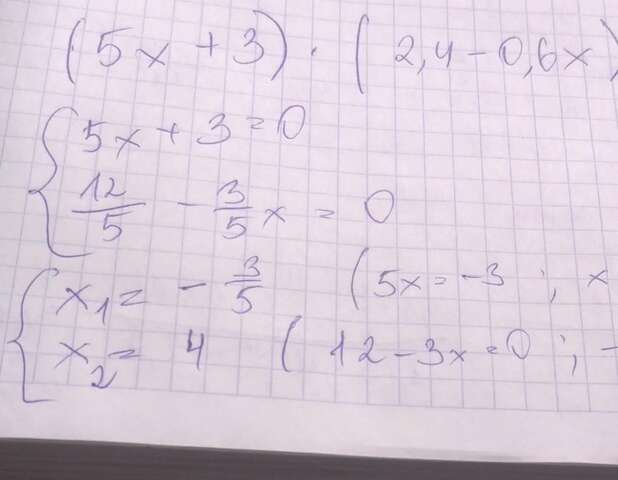 (5x + 3) · (2,4 - 0,6x)
5x + 3 = 0
12/5 - 3/5 x = 0
x₁ = - 3/5 (5x = -3 ; x
x₂ = 4 ( 12 - 3x = 0 ; -